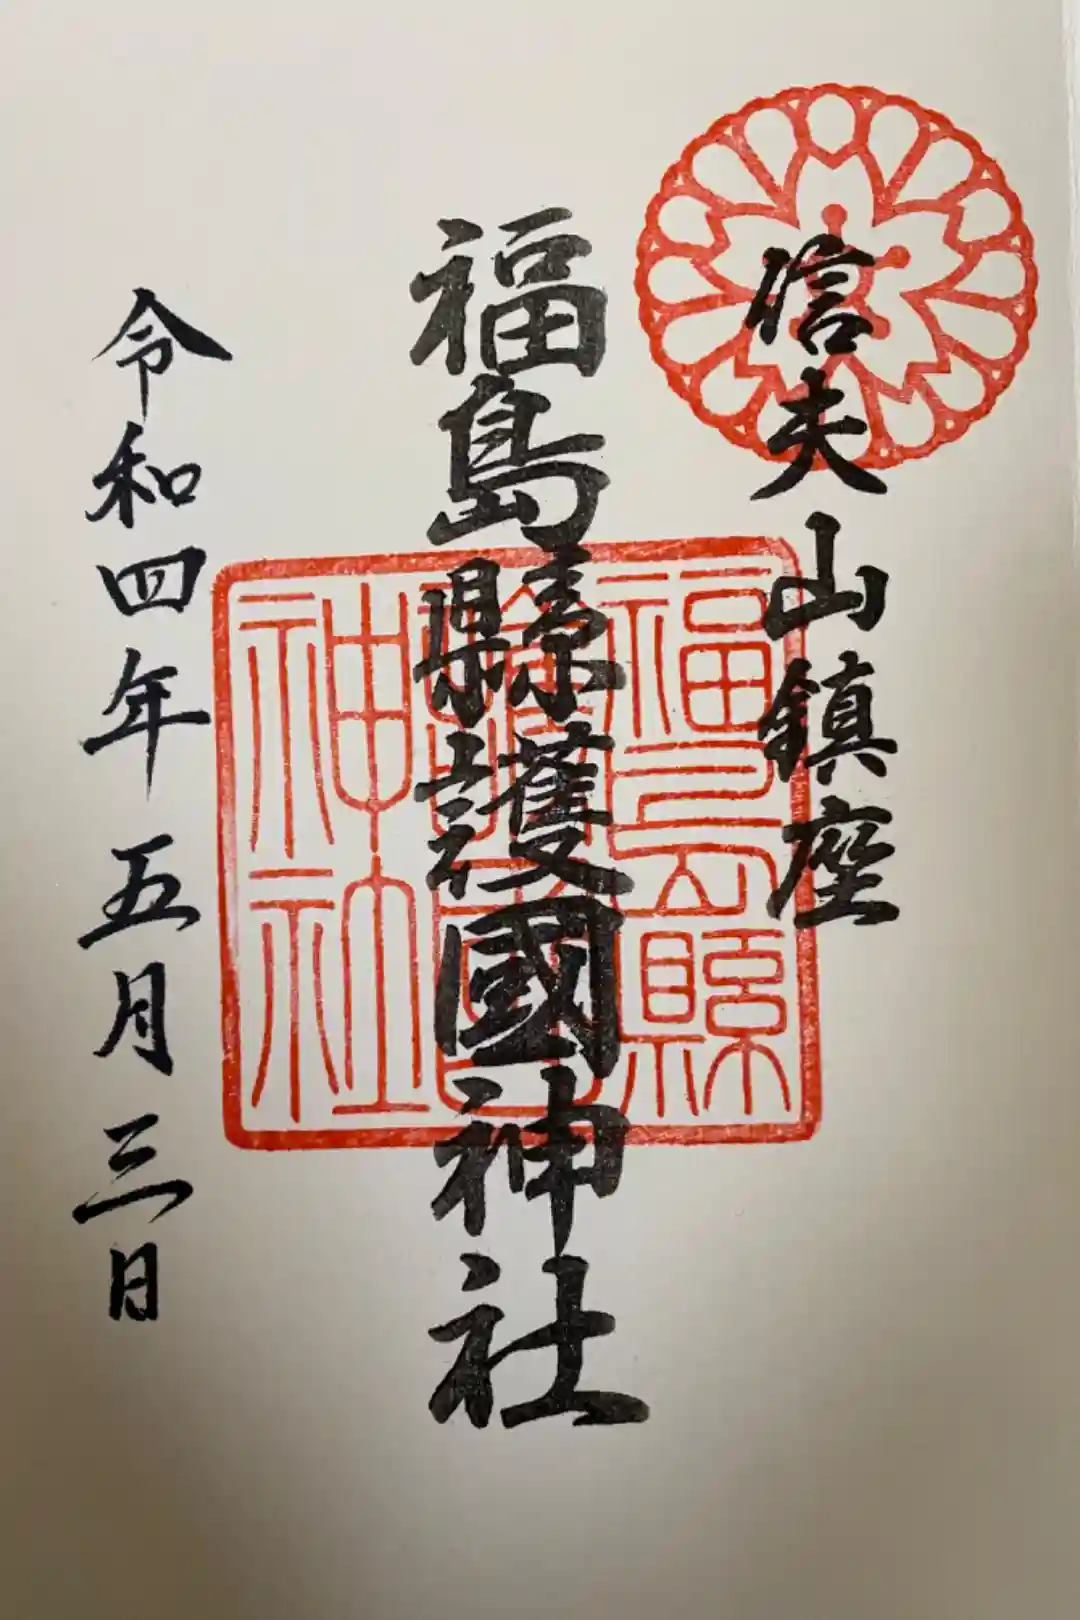 信夫山鎮座
福島縣護國神社
福島縣護國神社
令和四年五月三日